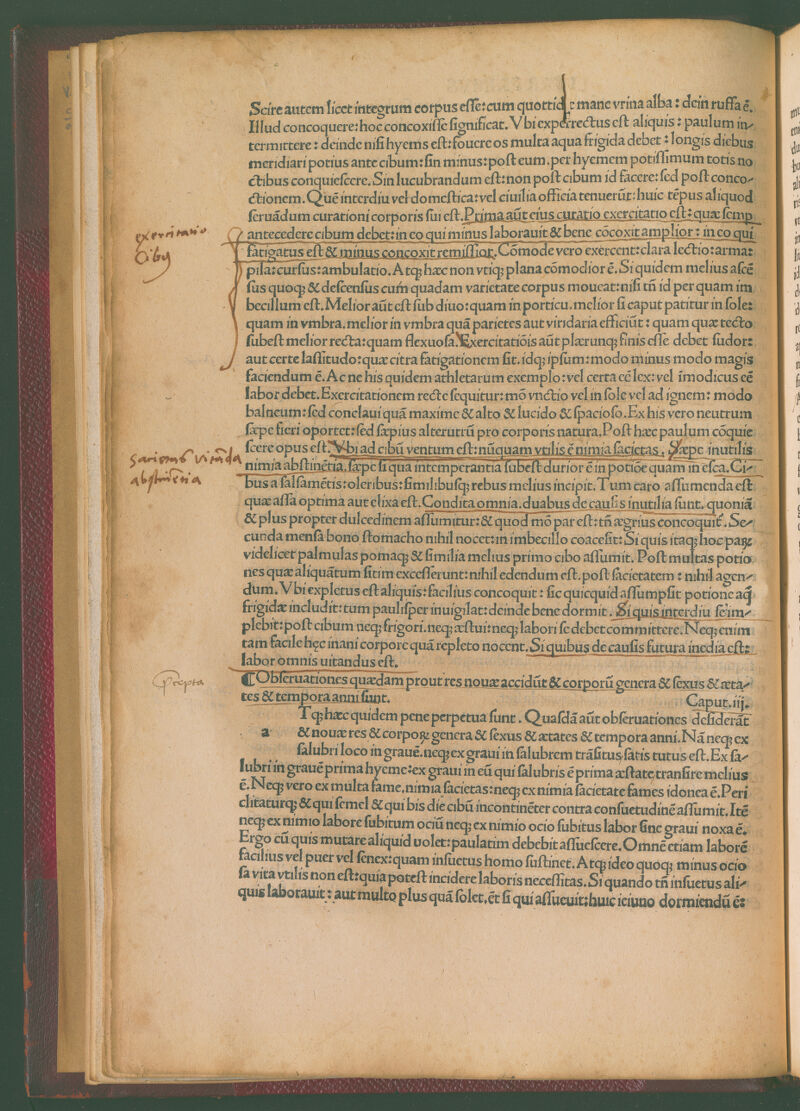 Scire autem licet integrum corpus esse: cum quottidie mane vrina alba: dein ruffa ē.
Illud concoquere: hoc concoxisse significat. Vbi experrectus est aliquis: paulum in⸗
termittere: deinde nisi hyems est: fouere os multa aqua frigida debet: longis diebus
meridiari potius ante cibum: sin minus: post eum. per hyemem potissimum totis no
ctibus conquiescere. Sin lucubrandum est: non post cibum id facere: sed post conco⸗
ctionem. Quē interdiu vel domestica: vel ciuilia officia tenuerūt: huic tēpus aliquod
seruādum curationi corporis sui est. Prima aūt eius curatio exercitatio est: quæ semp
exercitatio
cibus
antecedere cibum debet: in eo qui minus laborauit & bene cōcoxit amplior: in eo qui
fatigatus est & minus concoxit remissior. Cōmode vero exercent: clara lectio: arma:
pila: cursus: ambulatio. Atq; hæc non vtiq; plana cōmodior ē. Si quidem melius ascē
sus quoq; & descensus cum quadam varietate corpus moueat: nisi tñ id per quam im
becillum est. Melior aūt est sub diuo: quam in porticu. melior si caput patitur in sole:
quam in vmbra. melior in vmbra quā parietes aut viridaria efficiūt: quam quæ tecto
subest melior recta: quam flexuosa. Exercitatiōis aūt plærunq; finis esse debet sudor:
aut certe lassitudo: quæ citra fatigationem sit. idq; ipsum: modo minus modo magis
faciendum ē. Ac ne his quidem athletarum exemplo: vel certa eē lex: vel īmodicus eē
labor debet. Exercitationem recte sequitur: mō vnctio vel in sole vel ad ignem: modo
balneum: sed conclaui quā maxime & alto & lucido & spacioso. Ex his vero neutrum
sæpe fieri oportet: sed sæpius alterutrū pro corporis natura. Post hæc paulum cōquie
scere opus est. Vbi ad cibū ventum est: nūquam vtilis ē nimia facietas. Sæpe inutilis
abstinentia
nimia abstinētia. sæpe si qua intemperantia subest durior ē in potiōe quam in esca. Ci⸗
bus a salsamētis: oleribus: similibusq; rebus melius incipit. Tum caro assumenda est
quæ assa optima aut elixa est. Condita omnia. duabus de causis inutilia sunt. quoniā
& plus propter dulcedinem assumitur: & quod mō par est: tñ ægrius concoquit̄. Se⸗
cunda mensa bono stomacho nihil nocet: in imbecillo coacescit: Si quis itaq; hoc paꝝ
videlicet palmulas pomaq; & similia melius primo cibo assumit. Post multas potio
nes quæ aliquātum sitim excesserunt: nihil edendum est. post facietatem: nihil agen⸗
dum. Vbi expletus est aliquis: facilius concoquit: sic quicquid assumpsit potione aq̄
frigidæ includit: tum paulisper inuigilat: deinde bene dormit. Si quis interdiu se im⸗
plebit: post cibum neq; frigori. neq; æstui: neq; labori se debet committere. Neq; enim
tam facile hęc inani corpore quā repleto nocent. Si quibus de causis futura inedia est:
labor omnis uitandus est.
¶ Obseruationes quædam prout res nouæ accidūt & corporū genera & sexus & æta⸗
tes & tempora anni sunt. Caput. iij.
a Tq; hæc quidem pene perpetua sunt. Quasdā aūt obseruationes desiderāt
& nouæ res & corpoꝝ genera & sexus & ætates & tempora anni. Nā neq; ex
salubri loco in grauē. neq; ex graui in salubrem trāsitus satis tutus est. Ex sa⸗
lubri in grauē prima hyeme: ex graui in eū qui salubris ē prima æstate transire melius
ē. Neq; vero ex multa fame. nimia facietas: neq; ex nimia facietate fames idonea ē. Peri
clitaturq; & qui semel & qui bis die cibū incontinēter contra consuetudinē assumit. Itē
neq; ex nimio labore subitum ociū neq; ex nimio ocio subitus labor sine graui noxa ē.
Ergo cū quis mutare aliquid uolet: paulatim debebit assuescere. Omnē etiam laborē
facilius vel puer vel senex: quam insuetus homo sustinet. Atq; ideo quoq; minus ocio
sa vita vtilis non est: quia potest incidere laboris necessitas. Si quando tñ insuetus ali⸗
quis laborauit: aut multo plus quā solet. ēt si qui assueuit: huic ieiuno dormiendū ē: